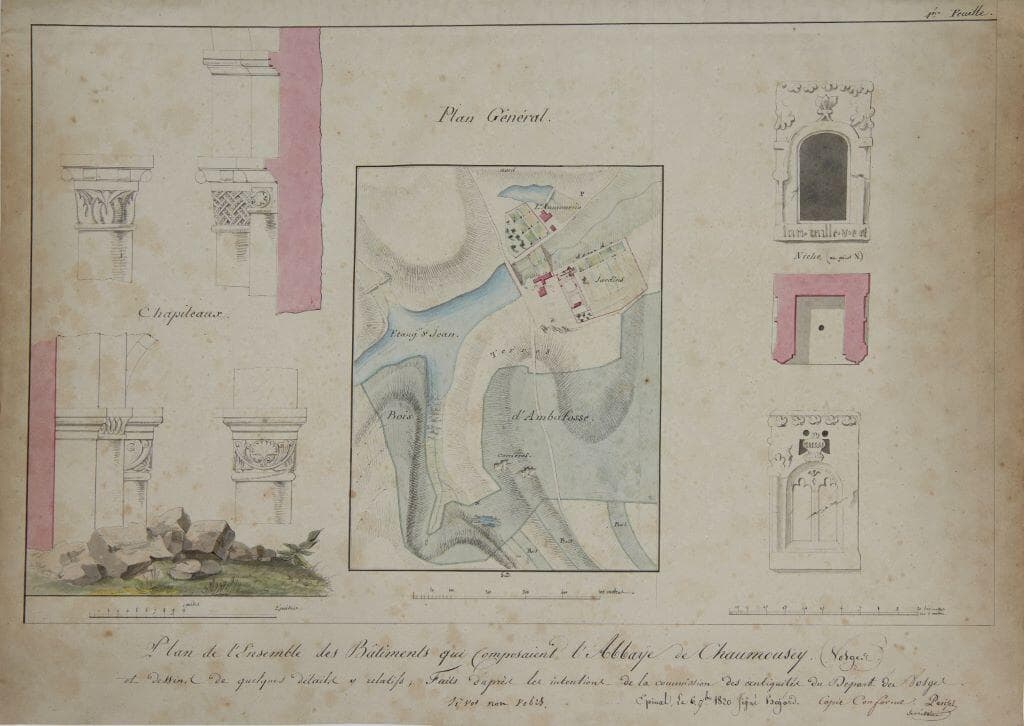 1ère Feuille.
Plan Général.
Nord
L'Aumonerie
Jardins
Etang St Jean.
Terres
Bois
d'Ambafosse.
Carrières
Bois
Sud
Chapiteaux.
Niche
2 mètres
Plan de l'Ensemble des Bâtiments qui Composaient l'Abbaye de Chaumousey. (Vosges)
et dessins de quelques détails y relatifs, Faits d'après les intentions de la commission des antiquités du Départ. des Vosges
Epinal, le 6 7bre 1820 Signé Hogard. Copie Conforme